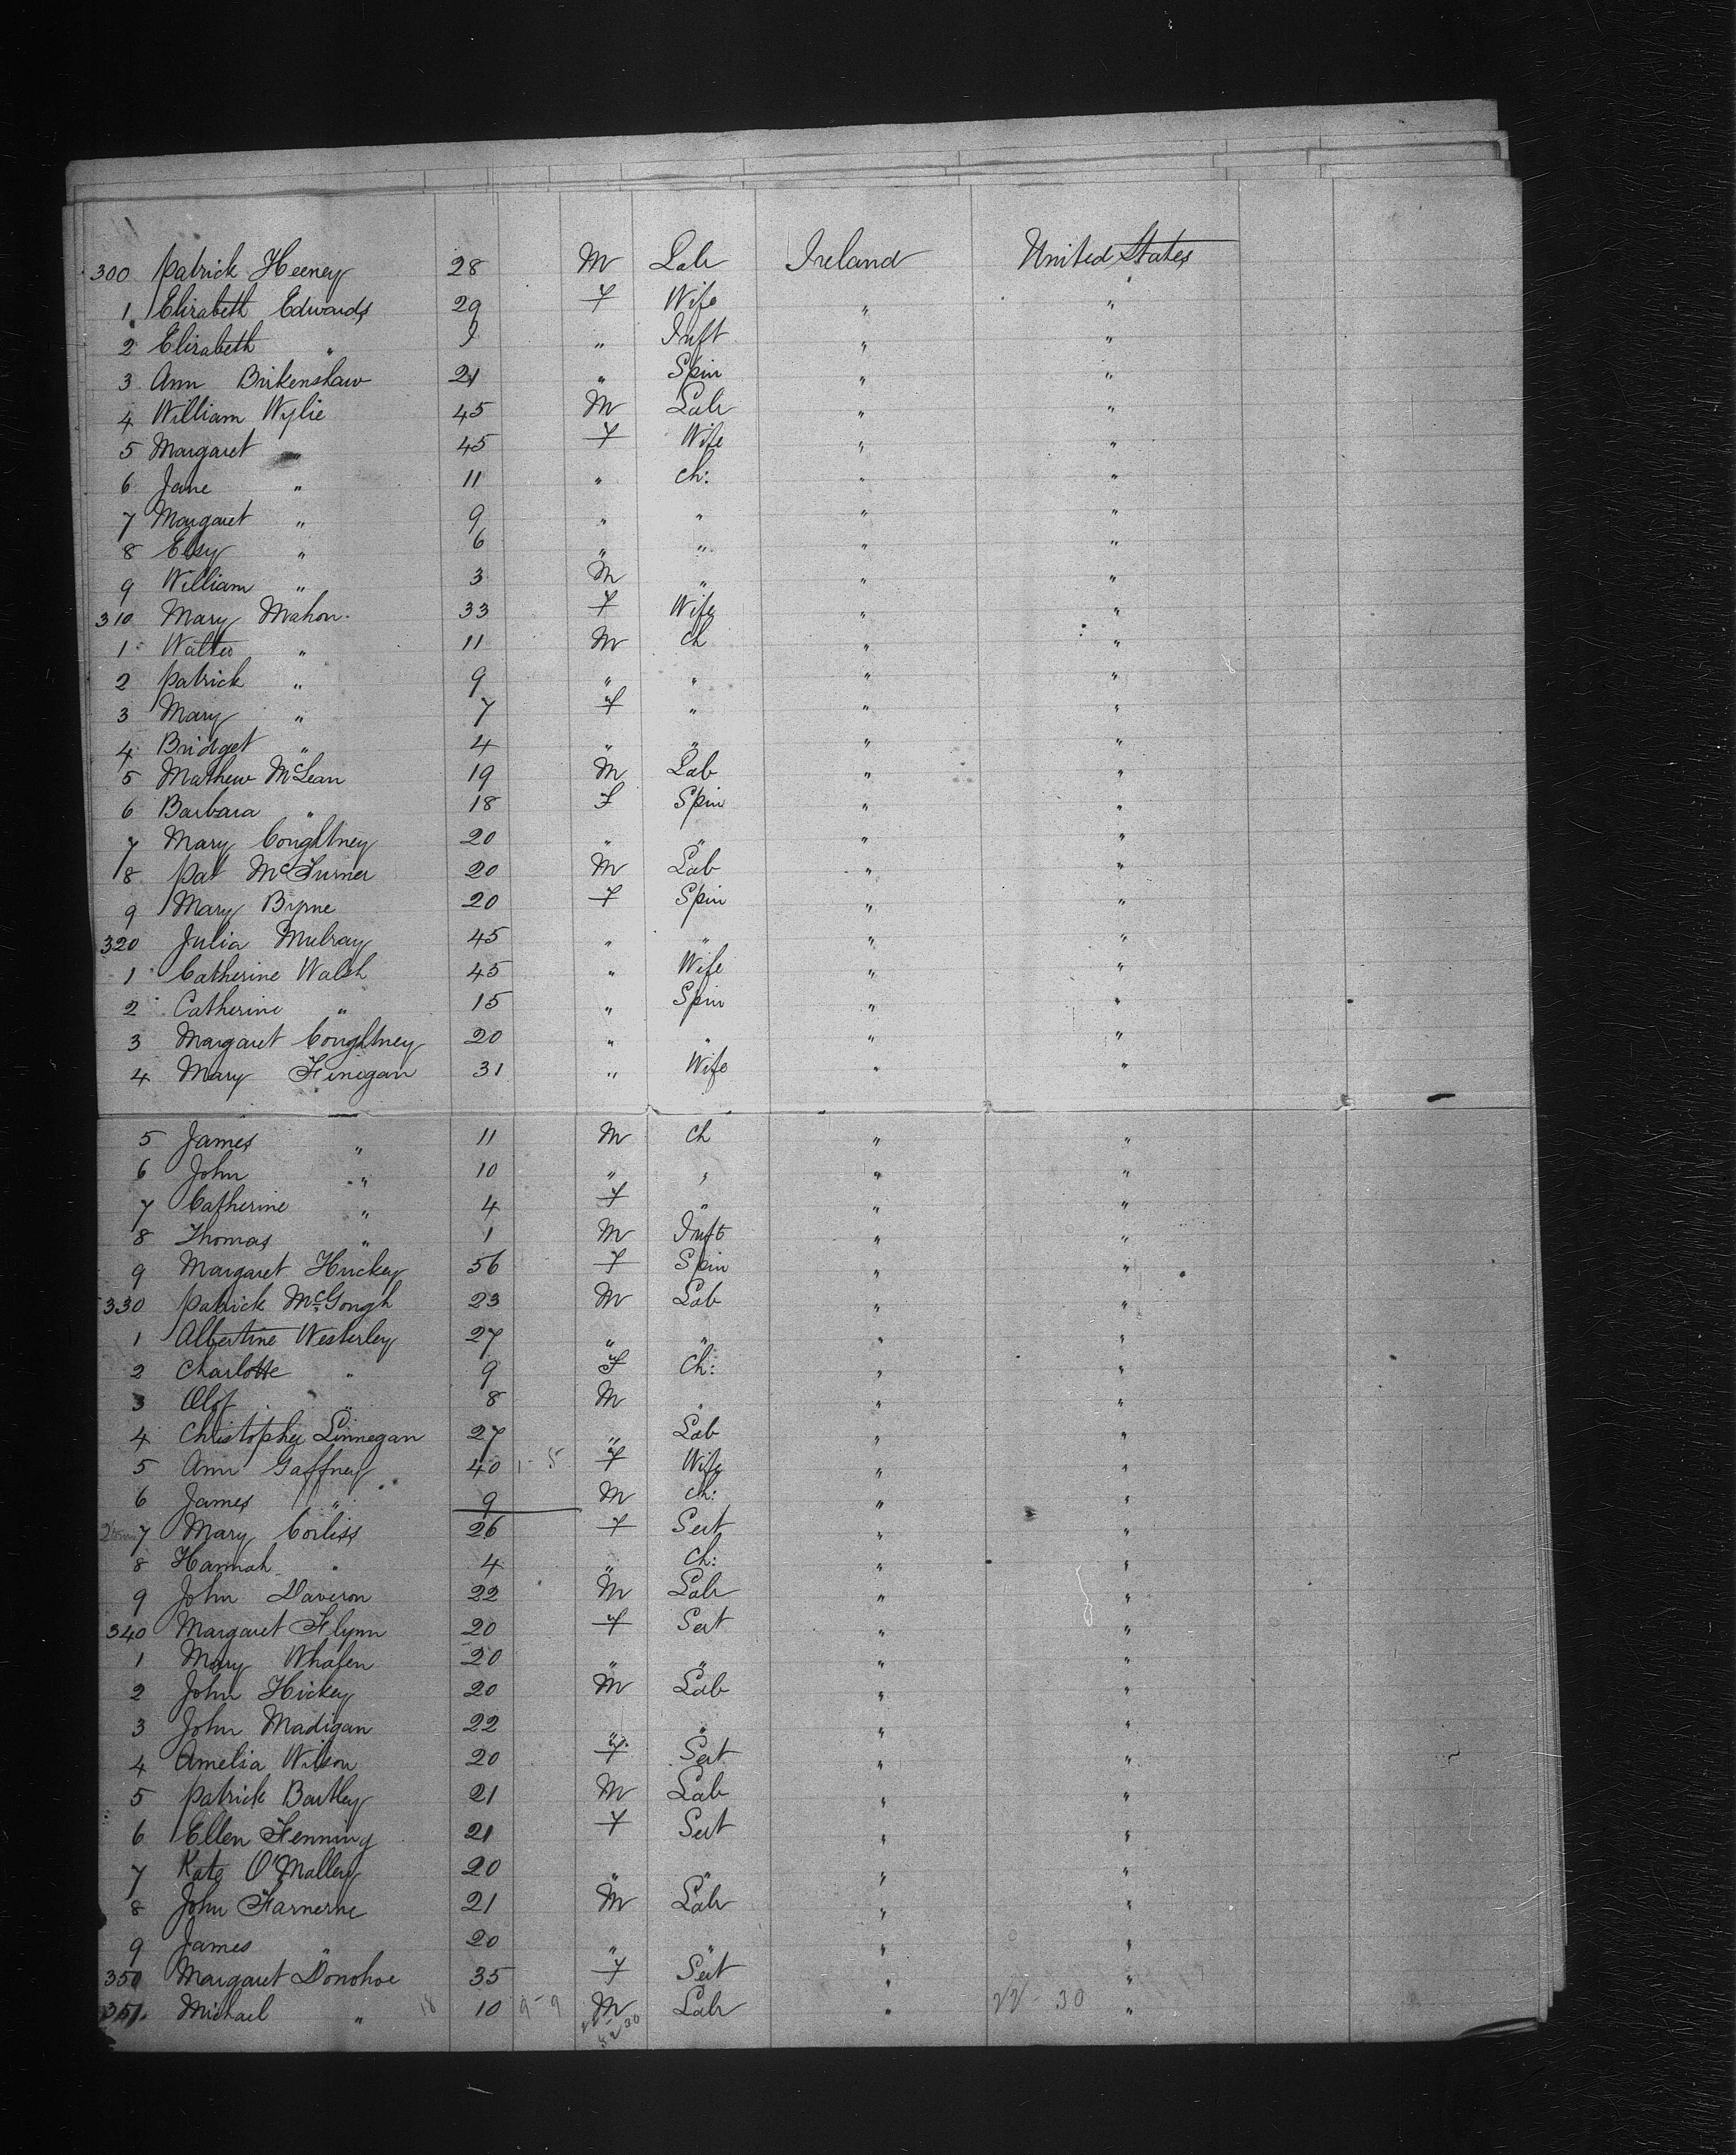 300 Patrick Heeney 28 M Lab Ireland United States
1 Elizabeth Edwards 29 F Wife " "
2 Elizabeth " " Inft " "
3 Ann Brikenshaw 21 " Spin " "
4 William Wylie 45 M Lab " "
5 Margaret " 45 F Wife " "
6 Jane " 11 " Ch: " "
7 Margaret " 9 " " " "
8 Elsy " 6 " " " "
9 William " 3 M " " "
310 Mary Mahon 33 F Wife " "
1 Walter " 11 M Ch " "
2 Patrick " 9 " " " "
3 Mary " 7 F " " "
4 Bridget " 4 " " " "
5 Mathew McLean 19 M Lab " "
6 Barbara " 18 F Spin " "
7 Mary Coughtney 20 " " " "
8 Pat 20 M Lab " "
9 Mary Byrne 20 F Spin " "
320 Julia Mulray 45 " " " "
1 Catherine Walsh 45 " Wife " "
2 Catherine " 15 " Spin " "
3 Margaret Coughtney 20 " " " "
4 Mary Finegan 31 " Wife " "
5 James " 11 M Ch " "
6 John " 10 " " " "
7 Catherine " 4 F " " "
8 Thomas " 1 M Inft " "
9 Margaret Huckey 56 F Spin " "
330 Patrick McGough 23 M Lab " "
1 Albertine Westerley 27 " " " "
2 Charlotte " 9 F Ch: " "
3 Olof " 8 M " " "
4 Christopher Linnegan 27 " Lab " "
5 Ann Gaffney 40 1-5 F Wife " "
6 James " 9 M Ch: " "
7 Mary Corliss 26 F Sert " "
8 Hannah " 4 " Ch: " "
9 John Daveron 22 M Lab " "
340 Margaret Flynn 20 F Sert " "
1 Mary Whalen 20 " " " "
2 John Hickey 20 M Lab " "
3 John Madigan 22 " " " "
4 Amelia Wilson 20 F Sert " "
5 Patrick Bartley 21 M Lab " "
6 Ellen Fenning 21 F Sert " "
7 Kate O'Malley 20 " " " "
8 John Farnerne 21 M Lab " "
9 James " 20 " " " "
350 Margaret Donohoe 35 F Sert " "
351. Michael " 18 10 9-9 M Lab " 22-30 "